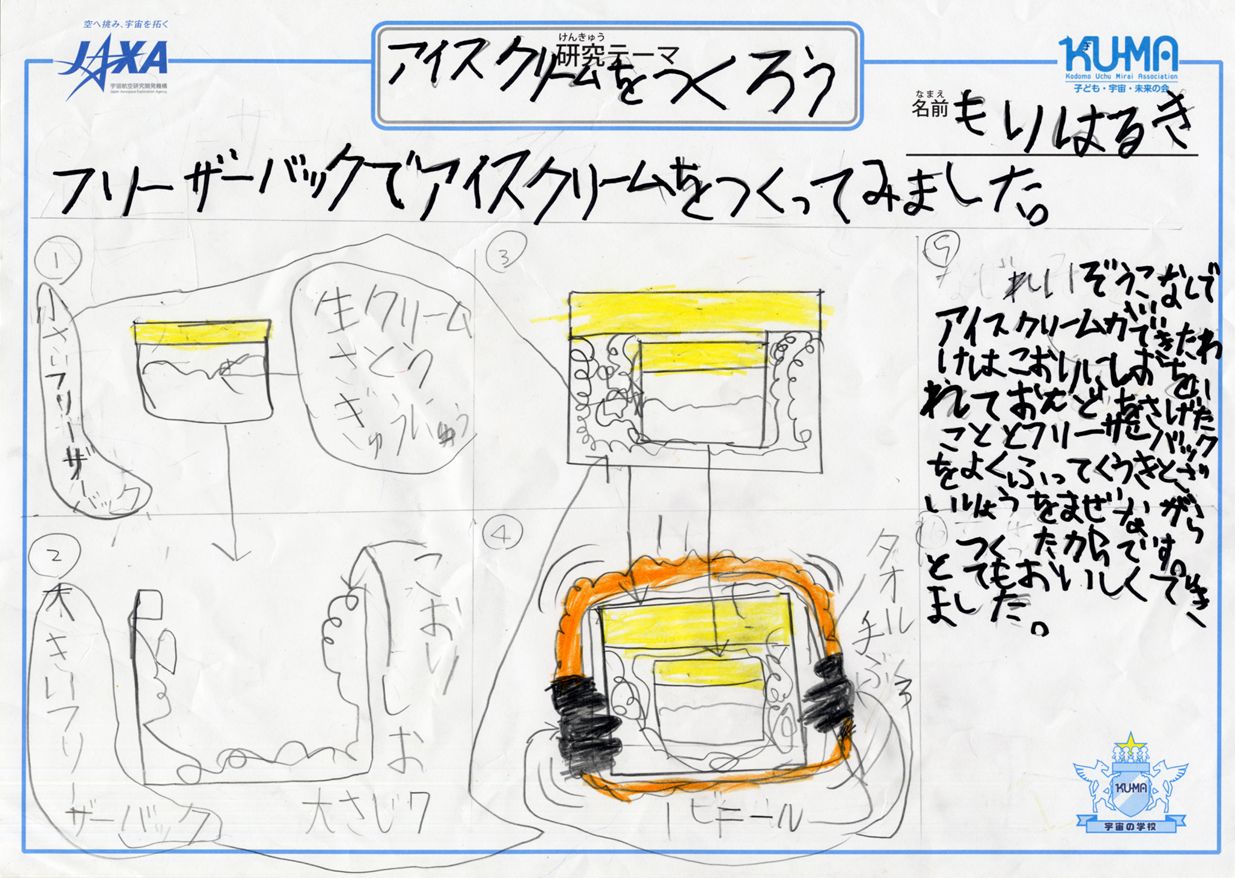 空へ挑み、宇宙を拓く
JAXA
宇宙航空研究開発機構
Japan Aerospace Exploration Agency
けんきゅう
研究テーマ
アイスクリームをつくろう
KU-MA
Kodomo Uchu Mirai Association
子ども・宇宙・未来の会
なまえ
名前
もりはるき
フリーザーバックでアイスクリームをつくってみました。
①
小さいフリーザバック
生クリーム
さとう
ぎゅうにゅう
②
大きいフリーザーバック
こおり
しお
大さじ
③
④
タオル
手ぶ
ビニール
⑤
れいぞうこなしで
アイスクリームができたわ
けはこおりにしおをい
れておんどをさげた
こととフリーザーバック
をよくふってくうきとざ
いりょうをまぜながら
つくったからです。
とてもおいしくでき
ました。
KU-MA
宇宙の学校